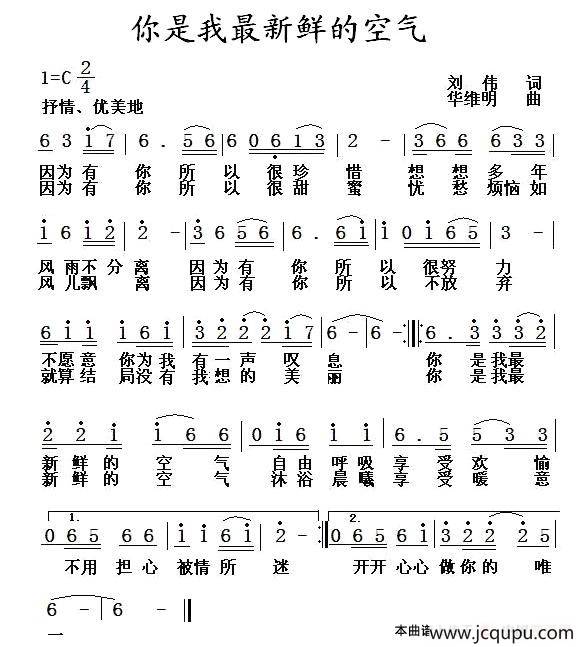 你是我最新鲜的空气
1=C 2/4
刘伟 词
抒情、优美地
华维明 曲
6 3 1 7 | 6. 5 6 | 6 0 6 1 3 | 2 - | 3 6 6 3 6 6 |
因为有 你所以很珍惜 想想多年
因为有 你所以很甜蜜 忧愁烦恼如
1 6 1 2 | 2 - | 3 6 5 6 | 6. 6 1 | 1 0 1 6 5 | 3 - |
风雨不分离 因为有你所以很努力
风儿飘离 因为有你所以不放弃
6 1 1 1 6 1 | 3 2 2 2 1 7 | 6 - | 6 - :||: 6. 3 3 3 2 |
不愿意你为我有一声叹息 你是我最
就算结局没有我想的美丽 你是我最
2 2 1 | 1 6 6 | 0 1 6 1 1 | 6. 5 5 3 3 |
新鲜的空气 自由呼吸享受欢愉
新鲜的空气 沐浴晨曦享受暖意
1. 2.
0 6 5 6 6 | 1 1 6 1 | 3 - :|| 0 6 5 6 5 6 1 | 3 2 2 2 5 |
不用担心被情所迷 开开心心做你的唯
6 - | 6 - ||
一
本曲谱
www.jcqupu.com